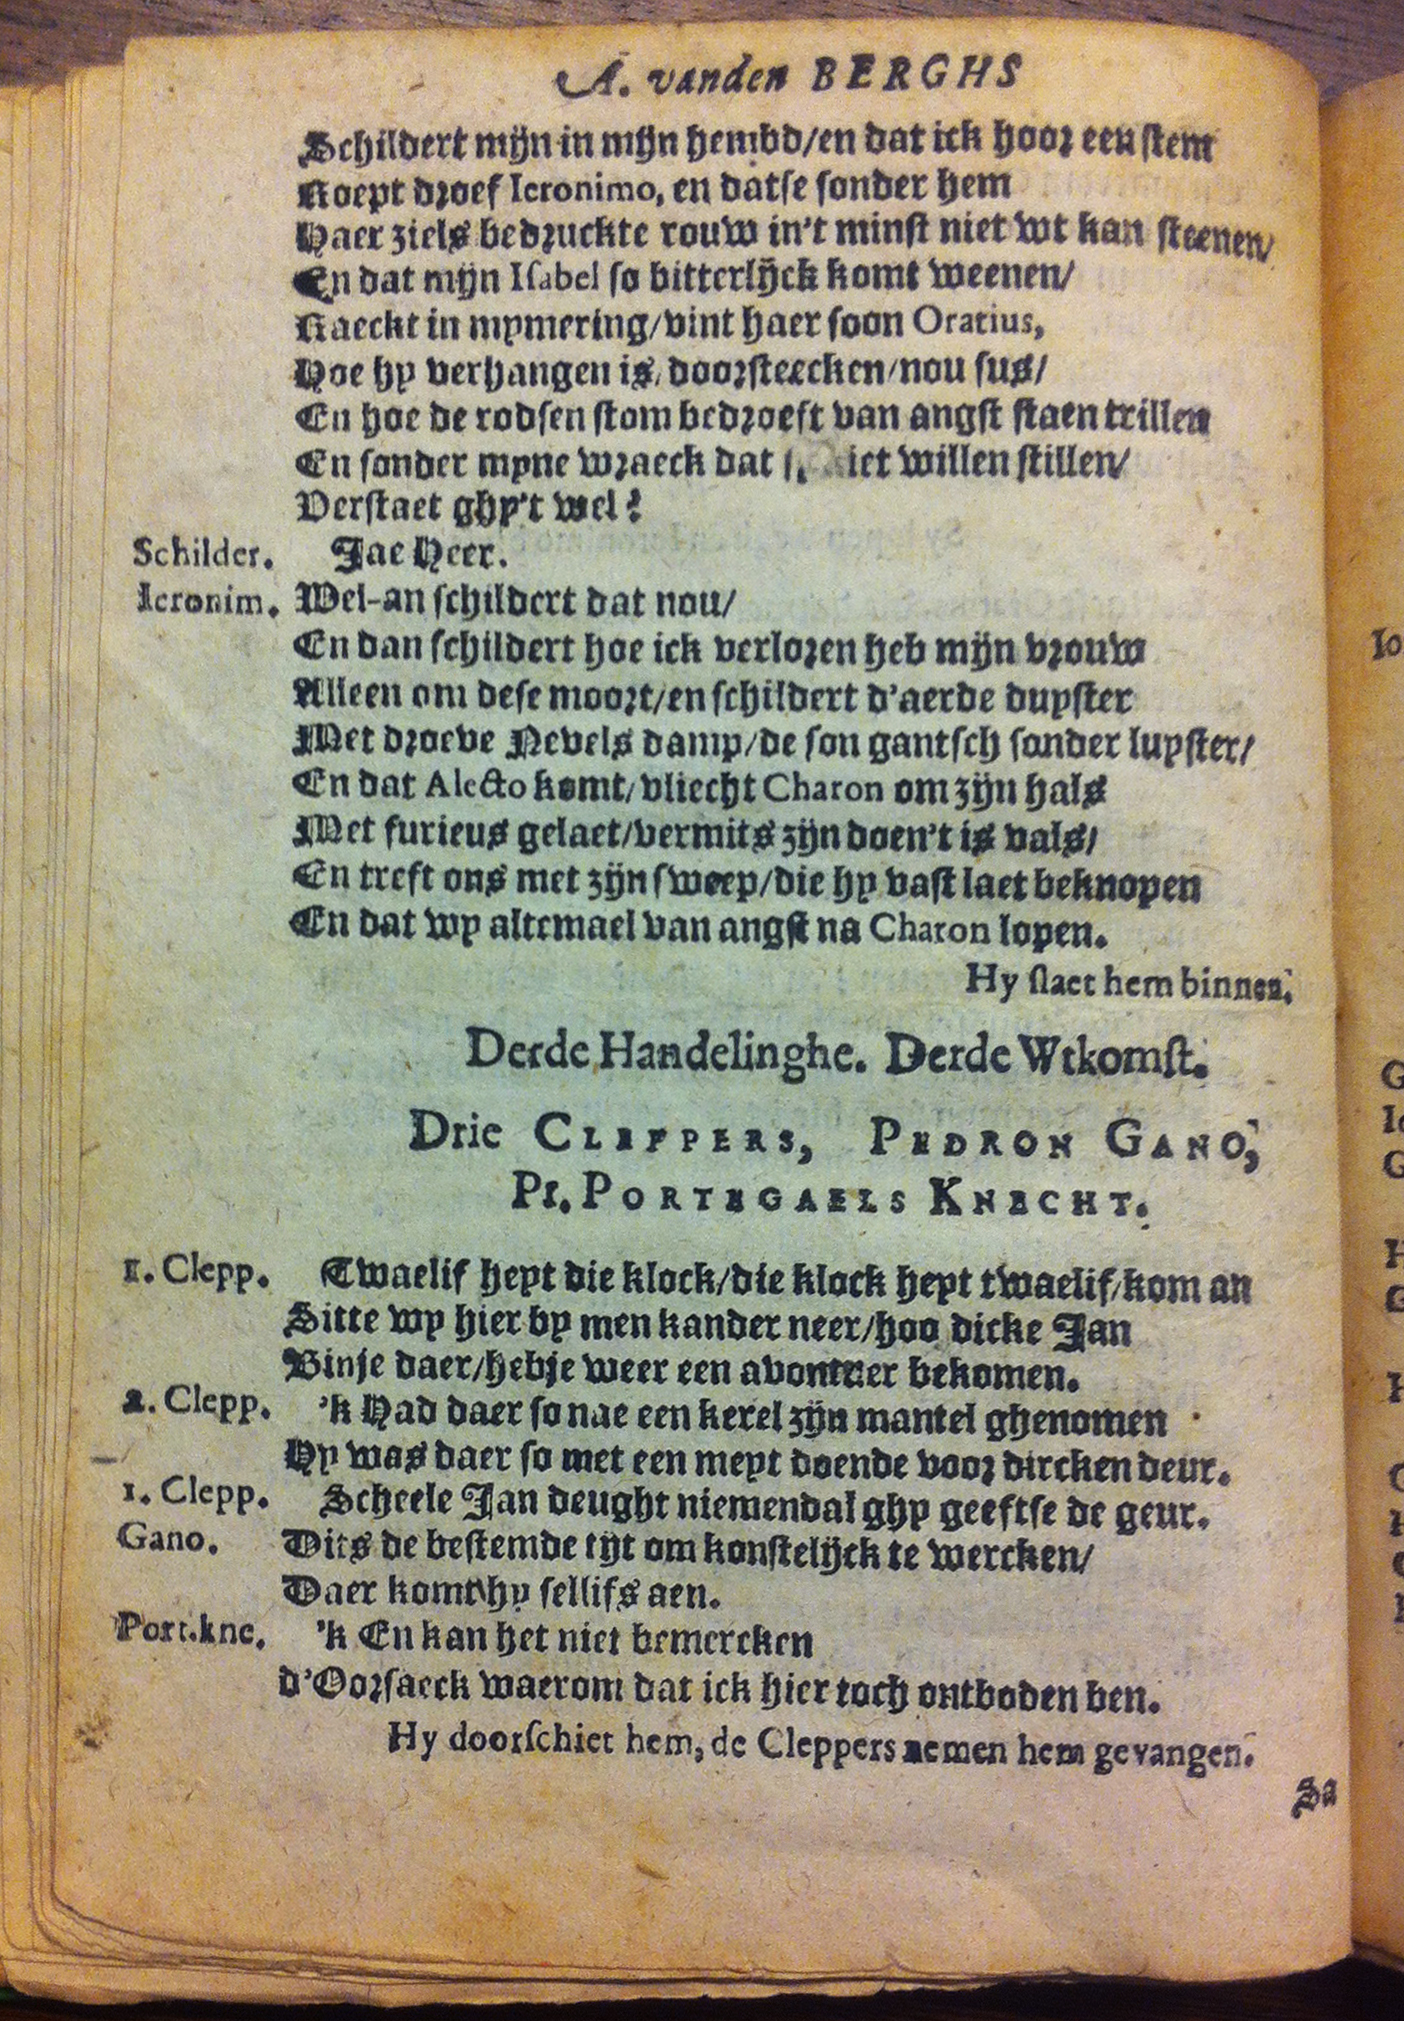 A. vanden BERGHS
Schildert mijn in mijn hembd/en dat ick hoor een stem
Roept droef Ieronimo, en datse sonder hem
Haer ziels bedruckte rouw in't minst niet wt kan steenen/
En dat mijn Isabel so bitterlijck komt weenen/
Naeckt in mymering/vint haer soon Oratius,
Hoe hy verhangen is, doorsteecken/nou sus/
En hoe de rodsen stom bedroeft van angst staen trillen
En sonder myne wraeck dat iet willen stillen/
Verstaet ghy't wel?
Schilder. Jae Heer.
Ieronim. Wel-an schildert dat nou/
En dan schildert hoe ick verloren heb mijn vrouw
Alleen om dese moort/en schildert d'aerde duyster
Met droeve Nevels damp/de son gantsch sonder luyster/
En dat Alecto komt/vliecht Charon om zijn hals
Met furieus gelaet/vermits zijn doen't is vals/
En treft ons met zijn sweep/die hy vast laet beknopen
En dat wy altemael van angst na Charon lopen.
Hy slaet hem binnen.
Derde Handelinghe. Derde Wtkomst.
Drie CLEPPERS, PEDRON GANO,
PI. PORTEGAELS KNECHT.
1. Clepp. Twaelif heyt die klock/die klock heyt twaelif/kom an
Sitte wy hier by men kander neer/hoo dicke Jan
Binje daer/hebje weer een avontuer bekomen.
2. Clepp. 'k Had daer so nae een kerel zijn mantel ghenomen
Hy was daer so met een meyt doende voor dircken deur.
1. Clepp. Scheele Jan deught niemendal ghy geeftse de geur.
Gano. Dits de bestemde tijt om konstelijck te wercken/
Daer komt hy sellifs aen.
Port.kne. 'k En kan het niet bemercken
d'Oorsaeck waerom dat ick hier toch ontboden ben.
Hy doorschiet hem, de Cleppers nemen hem gevangen.
Sa